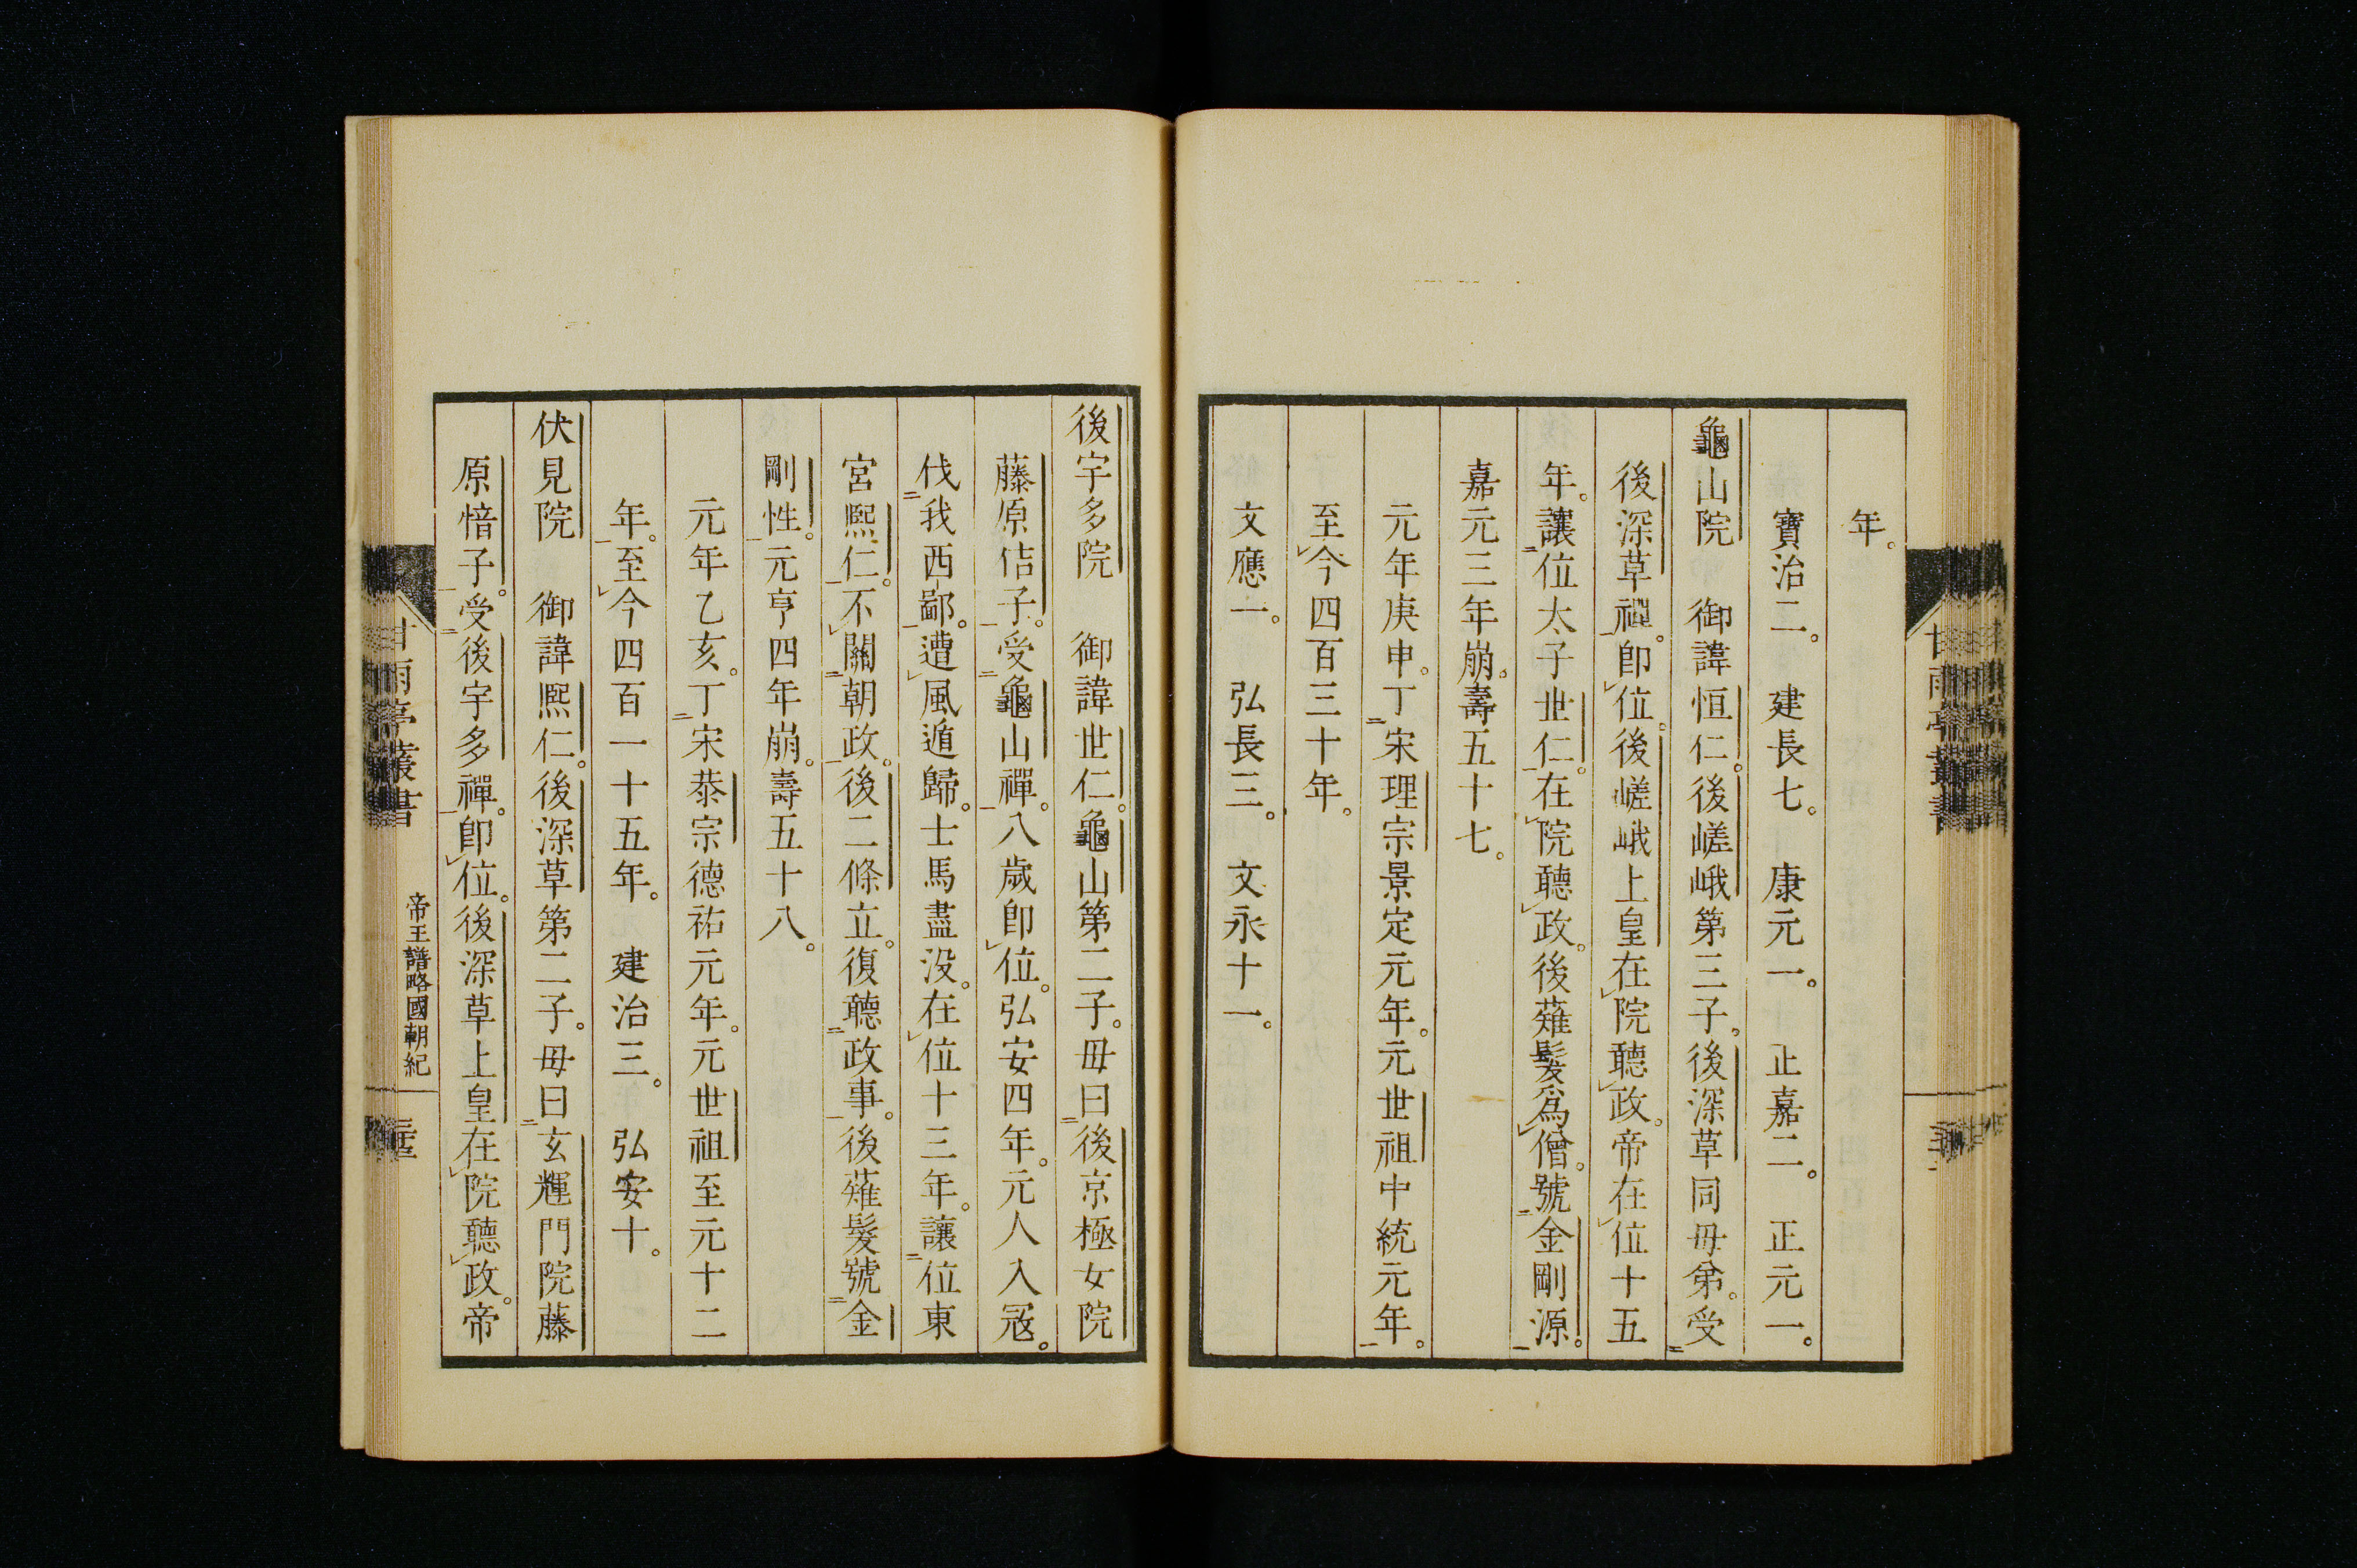 年。
寶治二。 建長七。 康元一。 正嘉二。 正元一。
龜山院 御諱恒仁。後嵯峨第三子。後深草同毋弟。受
後深草禪。卽位。後嵯峨上皇在院聽政。帝在位十五
年。讓位太子世仁。在院聽政。後薙髮爲僧。號金剛源。
嘉元三年崩。壽五十七。
元年庚申。丁宋理宗景定元年。元世祖中統元年。
至今四百三十年。
文應一。 弘長三。 文永十一。
後宇多院 御諱世仁。龜山第二子。毋曰後京極女院
藤原佶子。受龜山禪。八歲卽位。弘安四年。元人入寇。
伐我西鄙。遭風遁歸。士馬盡没。在位十三年。讓位東
宮熈仁。不關朝政。後二條立。復聽政事。後薙髮號金
剛性。元亨四年崩。壽五十八。
元年乙亥。丁宋恭宗德祐元年。元世祖至元十二
年。至今四百一十五年。 建治三。 弘安十。
伏見院 御諱熈仁。後深草第二子。毋曰玄輝門院藤
原愔子。受後宇多禪。卽位。後深草上皇在院聽政。帝
甘雨亭叢書
帝王譜略國朝紀
甘雨亭叢書